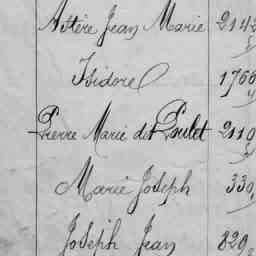 Astère Jean Marie 2142
Isidore 1766
Pierre Marie dit Poulet 2110
Marie Joseph 330
Joseph Jean 829